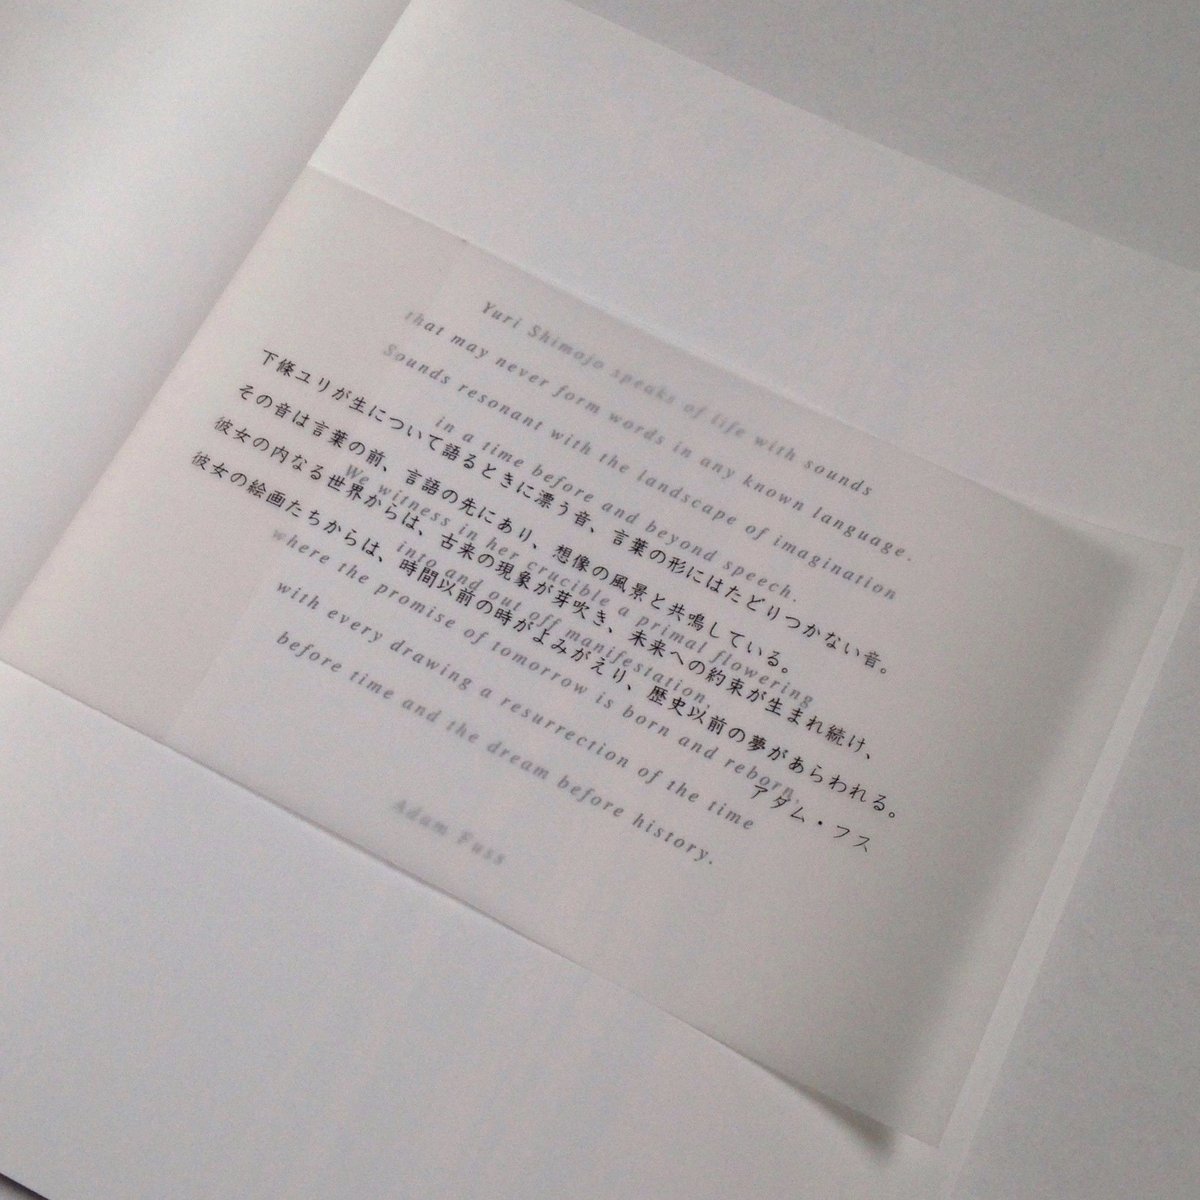 Yuri Shimojo speaks of life with sounds
that may never form words in any known language.
Sounds resonant with the landscape of imagination
in a time before and beyond speech.
We witness in her crucible a primal flowering
into and out off manifestation,
where the promise of tomorrow is born and reborn,
with every drawing a resurrection of the time
before time and the dream before history.
Adam Fuss
下條ユリが生について語るときに漂う音、言葉の形にはたどりつかない音。
その音は言葉の前、言語の先にあり、想像の風景と共鳴している。
彼女の内なる世界からは、古来の現象が芽吹き、未来への約束が生まれ続け、
彼女の絵画たちからは、時間以前の時がよみがえり、歴史以前の夢があらわれる。
アダム・フス